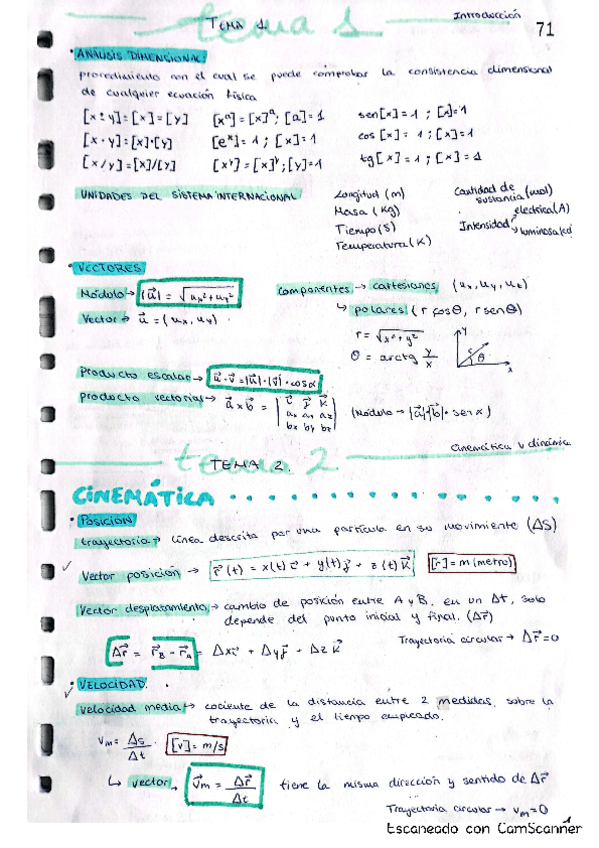 Introducción
71
tema 1
TEMA 1
• ANÁLISIS DIMENSIONAL:
procedimiento con el cual se puede comprobar la consistencia dimensional
de cualquier ecuación física
[x ± y] = [x] = [y] [xᵃ] = [x]ᵃ; [a] = 1 sen[x] = 1 ; [x] = 1
[x · y] = [x]·[y] [eˣ] = 1 ; [x] = 1 cos [x] = 1 ; [x] = 1
[x / y] = [x]/[y] [xʸ] = [x]ʸ; [y] = 1 tg [x] = 1 ; [x] = 1
UNIDADES DEL SISTEMA INTERNACIONAL
Longitud (m)
Masa (Kg)
Tiempo (s)
Temperatura (K)
Cantidad de
sustancia (mol)
Intensidad electrica (A)
luminosa (cd
• VECTORES
Módulo → |u⃗| = √ux² + uy²
Vector → u⃗ = (ux, uy)
componentes → cartesianas (ux, uy, uz)
↳ polares (r cosθ, r senθ)
r = √x² + y²
θ = arctg y/x
y
r
θ
x
Producto escalar → u⃗ · v⃗ = |u⃗| · |v⃗| · cos α
producto vectorial → a⃗ x b⃗ = | i⃗ j⃗ k⃗ | (Módulo → |a⃗|·|b⃗| · sen α)
ax ay az
bx by bz
Cinemática y dinámica
tema 2
TEMA 2
CINEMÁTICA
• POSICION
trayectoria → línea descrita por una partícula en su movimiento (ΔS)
✓ Vector posición → r⃗(t) = x(t) i⃗ + y(t) j⃗ + z(t) k⃗ [r] = m (metro)
Vector desplazamiento → cambio de posición entre A y B, en un Δt, solo
depende del punto inicial y final. (Δr⃗)
Δr⃗ = r⃗B - r⃗A = Δx i⃗ + Δy j⃗ + Δz k⃗
Trayectoria circular → Δr⃗ = 0
• VELOCIDAD.
✓ velocidad media → cociente de la distancia entre 2 medidas, sobre la
trayectoria y el tiempo empleado.
Vm = Δs/Δt · [v] = m/s
↳ vector → v⃗m = Δr⃗/Δt tiene la misma dirección y sentido de Δr⃗
Trayectoria circular → vm = 0
1
Escaneado con CamScanner